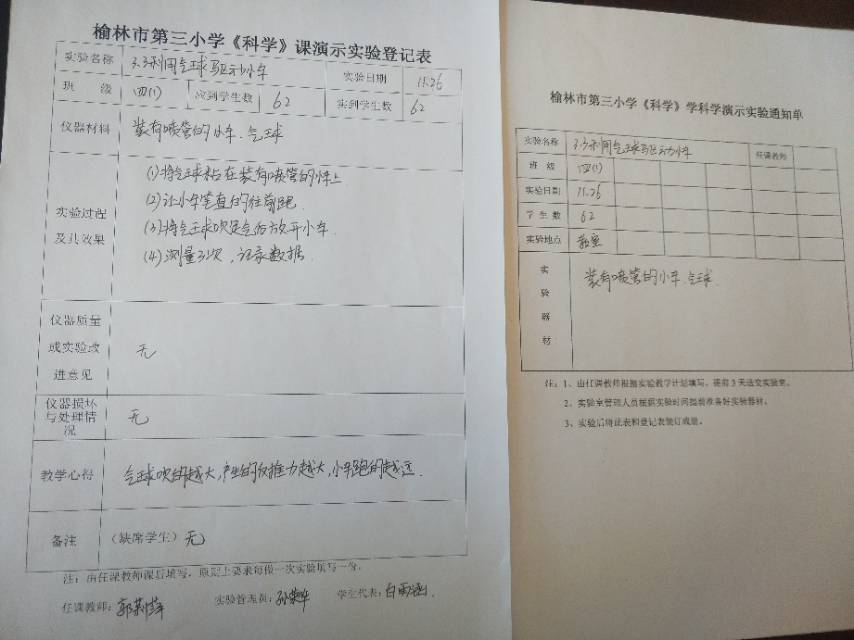 榆林市第三小学《科学》课演示实验登记表
实验名称 3.3利用气球驱动小车 实验日期 11.26
班 级 四(1) 应到学生数 62 实到学生数 62
仪器材料 装有喷管的小车、气球
实验过程及其效果
(1)将气球粘在装有喷管的小车上
(2)让小车笔直的往前跑.
(3)将气球吹足气后放开小车.
(4)测量3次,记录数据.
仪器质量
或实验改
进意见
无
仪器损坏
与处理情
况
无
教学心得 气球吹的越大,产生的反推力越大,小车跑的越远.
备注 (缺席学生)无
注:由任课教师课后填写,原则上要求每做一次实验填写一份。
任课教师: 实验管理员: 学生代表:白雨涵.
榆林市第三小学《科学》学科学演示实验通知单
实验名称 3.3利用气球驱动小车 任课教师
班 级 四(1)
实验日期 11.26
学 生 数 62
实验地点 教室
实验器材
装有喷管的小车、气球.
注:1、由任课教师根据实验教学计划填写,提前3天送交实验室。
2、实验室管理人员根据实验时间提前准备好实验器材。
3、实验后将此表和登记表装订成册。